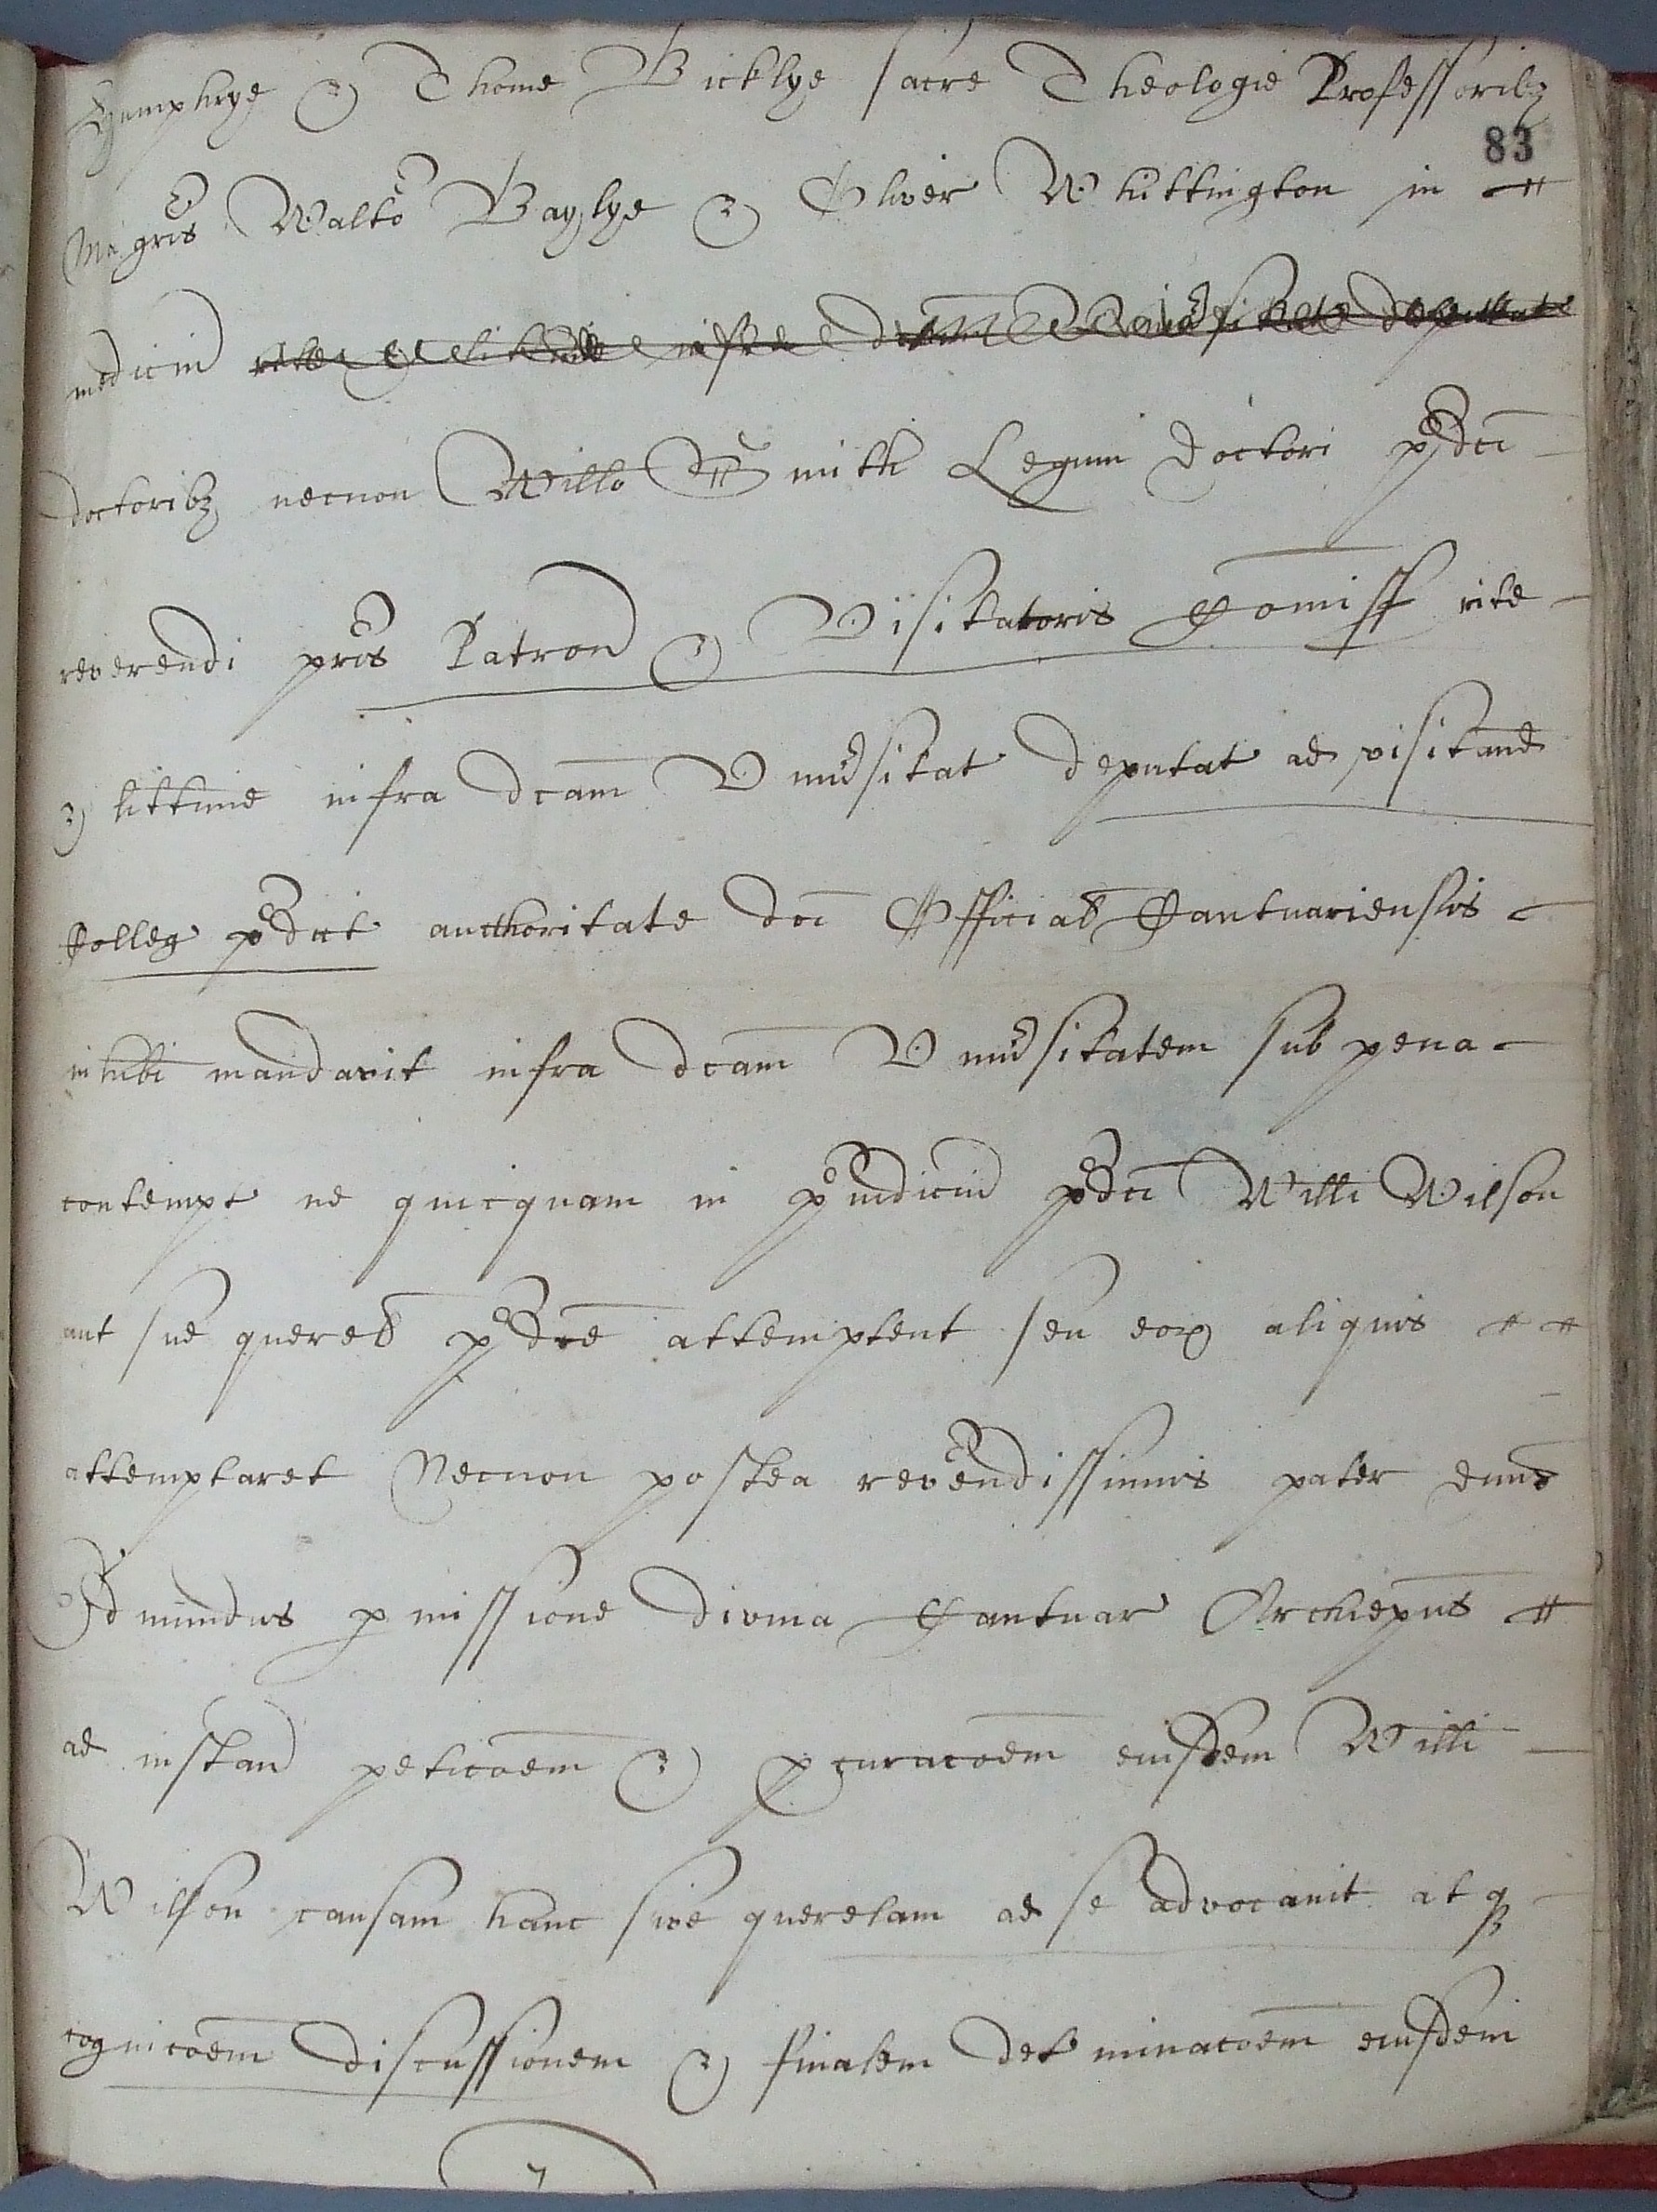 Humphrye & Thome Bicklye sacre Theologie Professoribz
83
Magris Walto Baylye & Oliver Whittington in
medicin rite & littime infra dcam Universitate deputat
doctoribz necnon Willo Smith Legum doctori pdci
reverendi pris Patron & Visitatoris Comiss rite
& littime infra dcam Universitat deputat ad visitand
Colleg pdict aucthoritate dci Official Cantuariensis
inhibi mandavit infra dcam Universitatem sub pena
contempt ne quicquam in piudicin pdci Willi Wilson
aut sue querel pdce attemptent seu eor aliquis
attemptaret Necnon postea revendissimus pater dnus
Edmundus pmissione divina Cantuar Archiepus
ad instan peticoem & pcuracoem eiusdem Willi
Wilson causam hanc sive querelam ad se advocavit atq
cognicoem discussionem & finalem determinacoem eiusdem